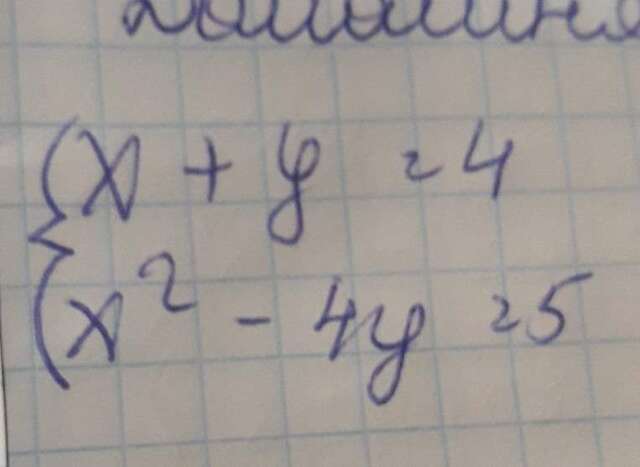 x + y = 4
x² - 4y = 5